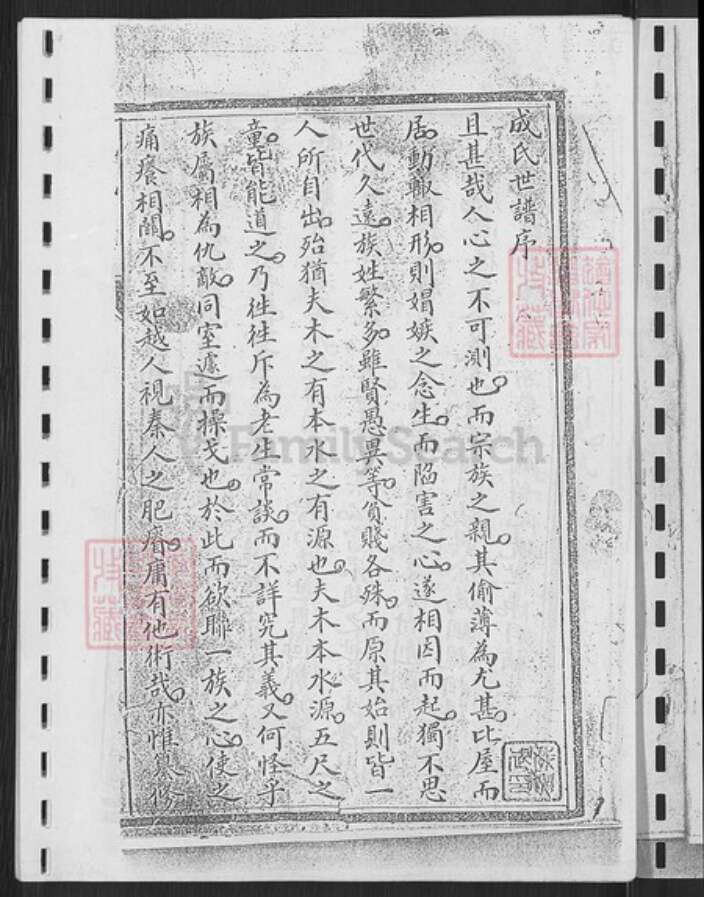 成氏世譜序
且甚哉人心之不可測也而宗族之親其偷薄為尤甚比屋而
居動輒相形則媢嫉之念生而陷害之心遂相因而起獨不思
世代久遠族姓繁多雖賢愚異等貧賤各殊而原其始則皆一
人所自出殆猶夫木之有本水之有源也夫木本水源五尺之
童皆能道之乃徃徃斥為老生常談而不詳究其義又何怪乎
族屬相為仇敵同室遽而操戈也於此而欲聯一族之心使之
痛癢相關不至如越人視秦人之肥瘠庸有他術哉亦惟纂修
FamilySearch